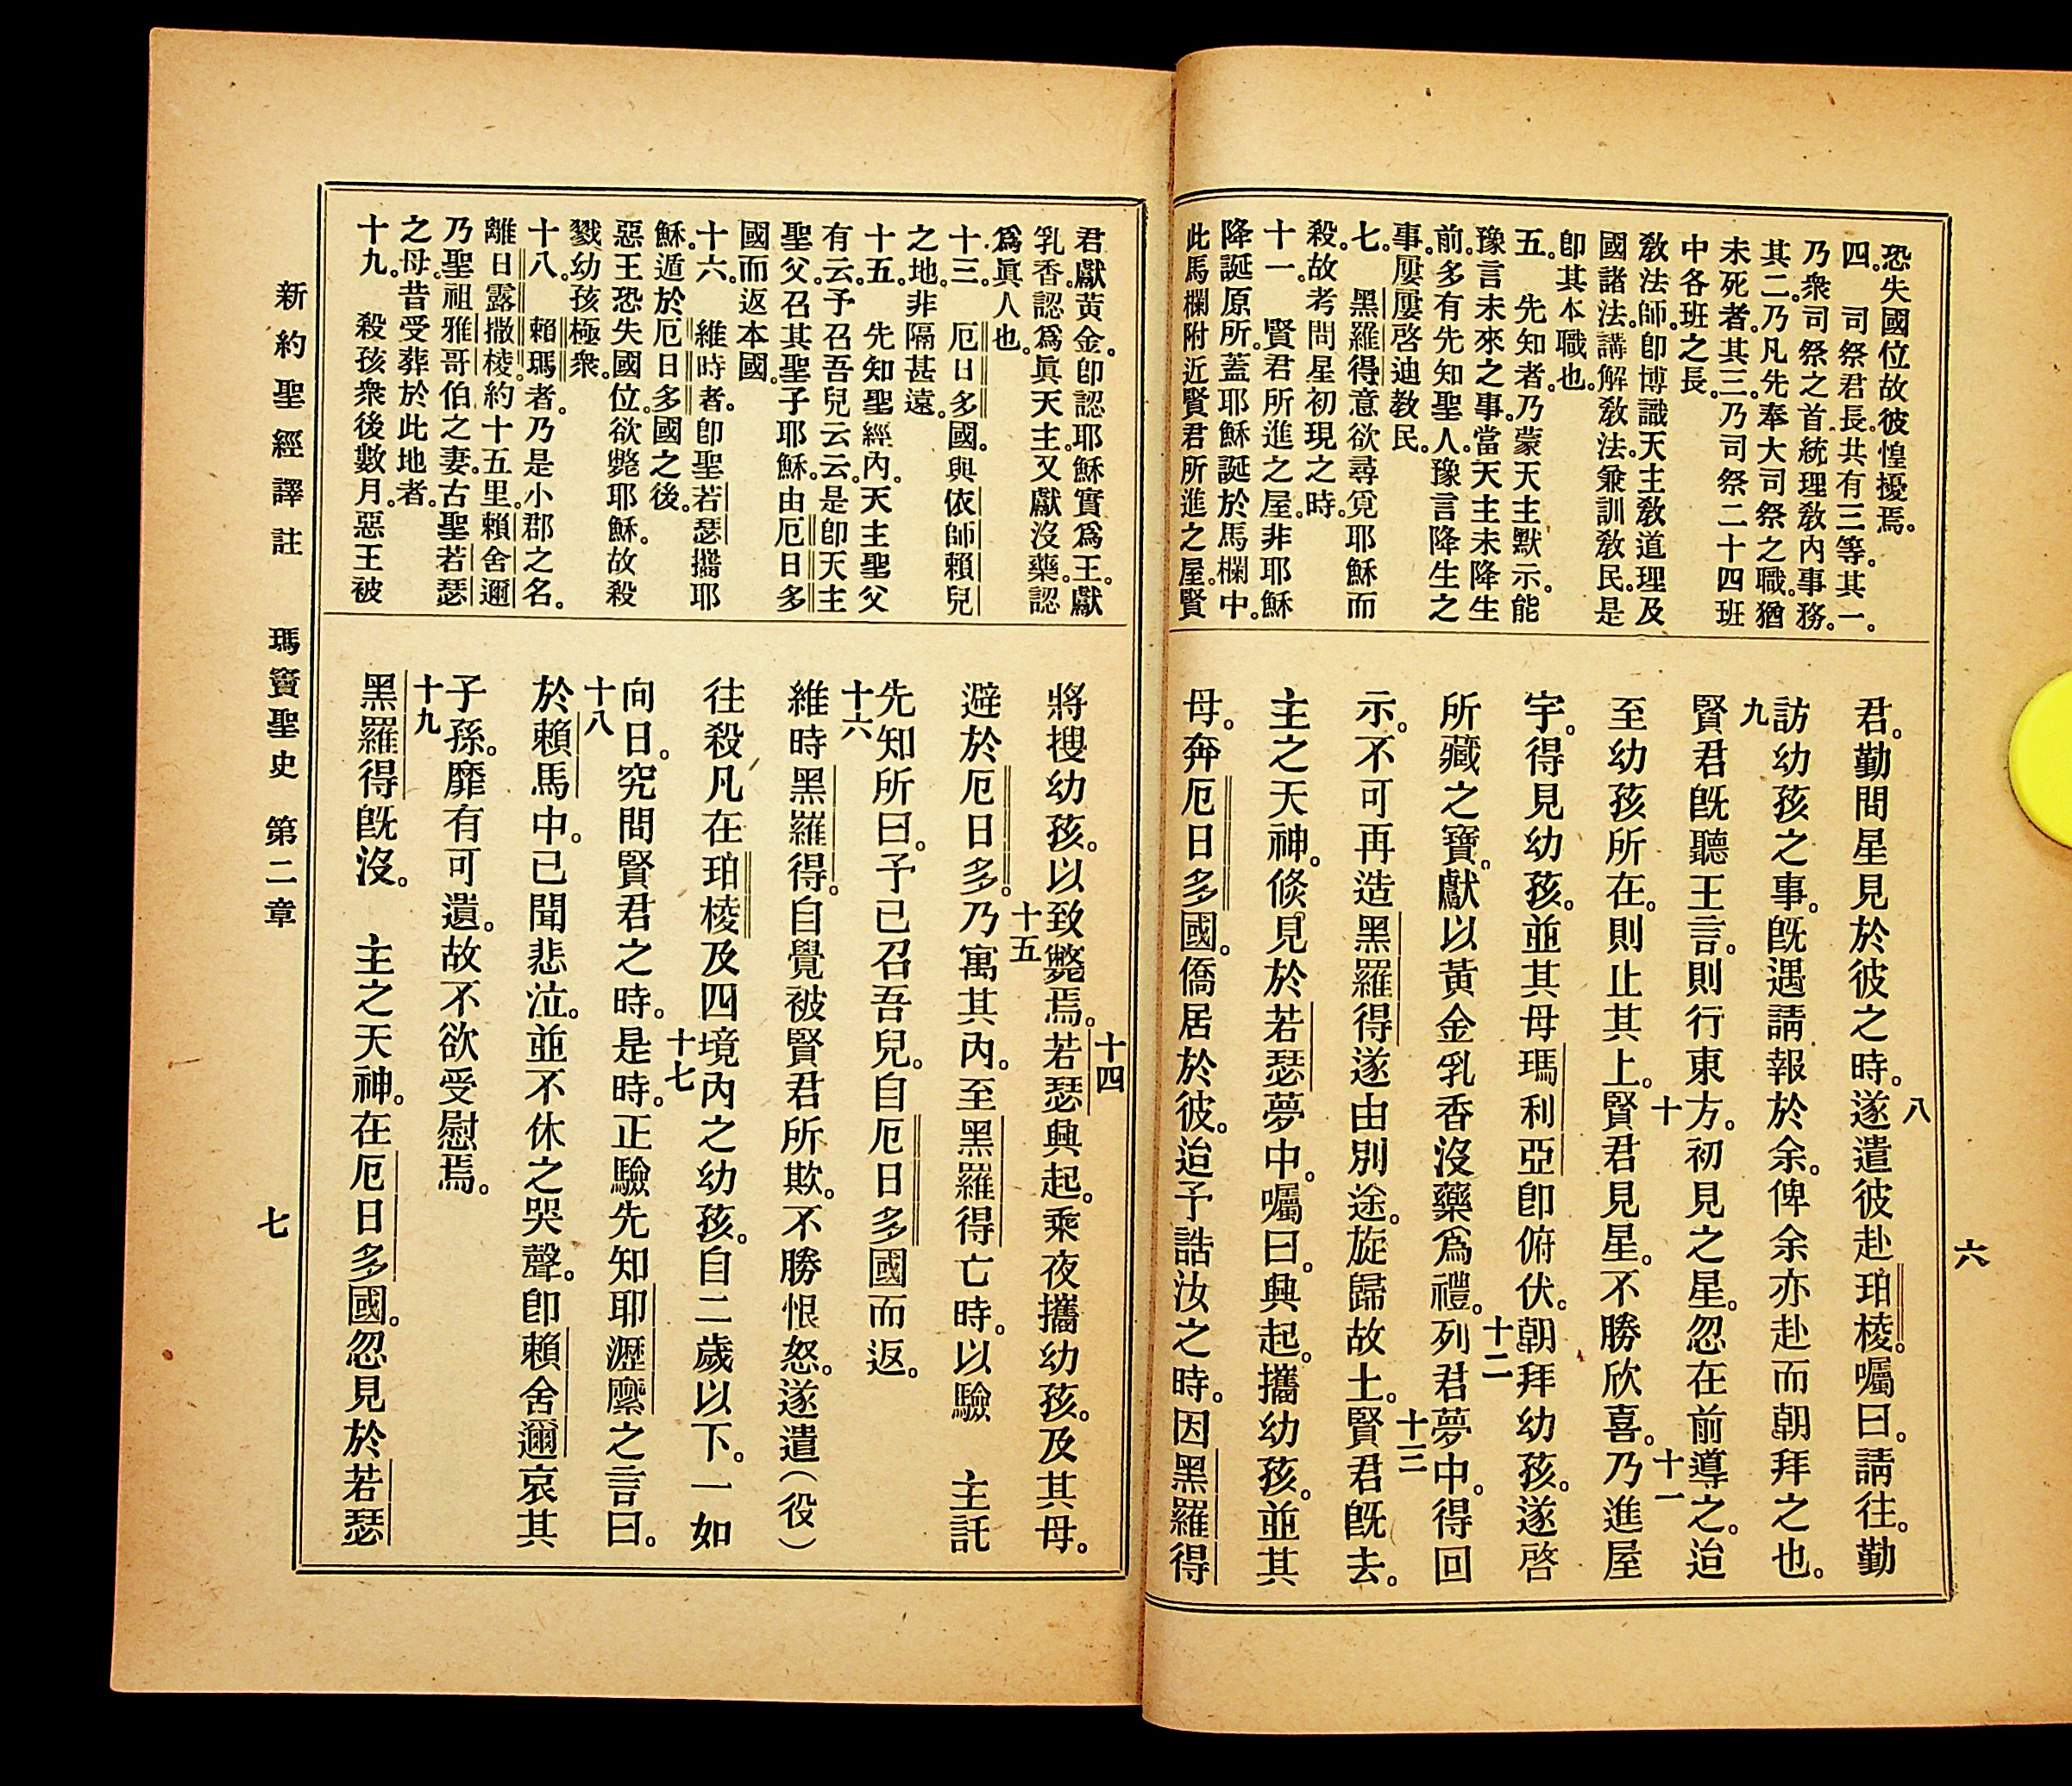 恐失國位故彼惶擾焉。
四。 司祭君長。共有三等。其一。
乃衆司祭之首統理敎內事務。
其二。乃凡先奉大司祭之職。猶
未死者。其三。乃司祭二十四班
中各班之長。
敎法師。卽博識天主敎道理及
國諸法。講解敎法。兼訓敎民。是
卽其本職也。
五。 先知者。乃蒙天主默示。能
豫言未來之事。當天主未降生
前。多有先知聖人。豫言降生之
事。屢屢啓迪敎民。
七。 黑羅得意欲尋覓耶穌而
殺。故考問星初現之時。
十一。 賢君所進之屋。非耶穌
降誕原所。蓋耶穌誕於馬欄中。
此馬欄附近賢君所進之屋。賢
君。勤問星見於彼之時。遂遣彼赴珀棱。囑曰。請往。勤
八
訪幼孩之事。旣遇請報於余。俾余亦赴而朝拜之也。
九
賢君旣聽王言。則行東方。初見之星。忽在前導之。迨
至幼孩所在。則止其上。賢君見星。不勝欣喜。乃進屋
十
十一
宇。得見幼孩。並其母瑪利亞卽俯伏。朝拜幼孩。遂啓
所藏之寶。獻以黃金乳香沒藥爲禮。列君夢中。得回
十二
示。不可再造黑羅得遂由別途。旋歸故土。賢君旣去。
十三
主之天神。倐見於若瑟夢中。囑曰。興起。攜幼孩。並其
母。奔厄日多國。僑居於彼。迨予誥汝之時。因黑羅得
六
君。獻黃金。卽認耶穌實爲王。獻
乳香認爲眞天主。又獻沒藥。認
爲眞人也。
十三。 厄日多國。與依師賴兒
之地。非隔甚遠。
十五。 先知聖經內。天主聖父
有云。予召吾兒云云。是卽天主
聖父。召其聖子耶穌。由厄日多
國而返本國。
十六。 維時者。卽聖若瑟攜耶
穌。遁於厄日多國之後。
惡王恐失國位。欲斃耶穌。故殺
戮幼孩極衆。
十八。 賴瑪者。乃是小郡之名。
離日露撒棱。約十五里。賴舍邇
乃聖祖雅哥伯之妻。古聖若瑟
之母。昔受葬於此地者。
十九。 殺孩衆後數月。惡王被
將搜幼孩。以致斃焉。若瑟興起。乘夜攜幼孩。及其母。
十四
避於厄日多。乃寓其內。至黑羅得亡時。以驗 主託
十五
先知所曰。予已召吾兒。自厄日多國而返。
維時黑羅得。自覺被賢君所欺。不勝恨怒。遂遣(役)
十六
往殺凡在珀棱及四境內之幼孩。自二歲以下。一如
向日。究問賢君之時。是時。正驗先知耶瀝縻之言曰。
十七
於賴馬中。已聞悲泣。並不休之哭聲。卽賴舍邇哀其
十八
子孫。靡有可遺。故不欲受慰焉。
黑羅得旣沒。 主之天神。在厄日多國。忽見於若瑟
十九
新約聖經譯註 瑪竇聖史 第二章 七